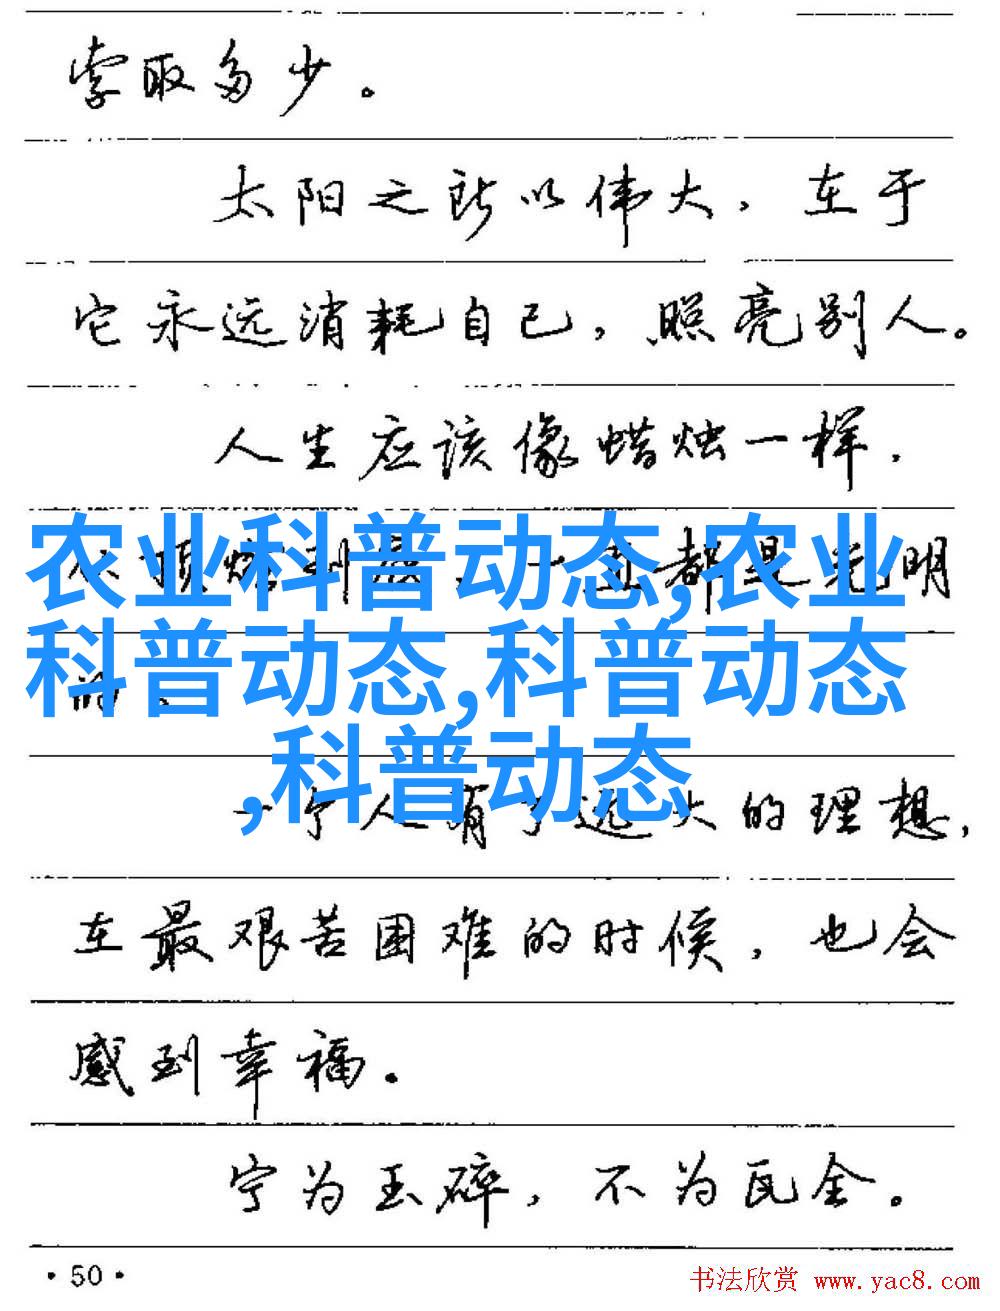 索取多少。
太阳之所以伟大，在于
它永远消耗自己，照亮别人。
人生应该像蜡烛一样，
从顶燃到底，一直都是光明
的。
农业科普动态,农业
科普动态,科普动态
,科普动态
一个人有了远大的理想，
在最艰苦困难的时候，也会
感到幸福。
宁为玉碎，不为瓦全。
·50·
书法欣赏 www.yac8.com